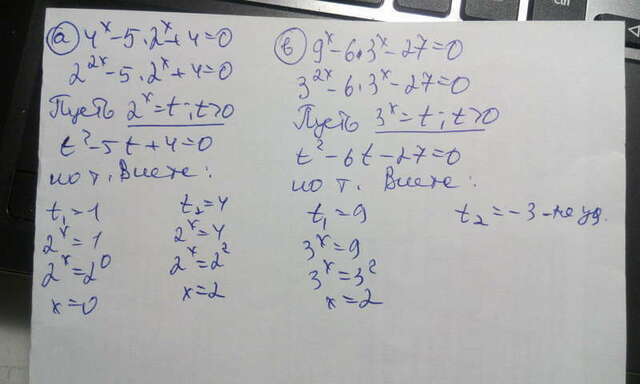 а) 4ˣ-5·2ˣ+4=0
2²ˣ-5·2ˣ+4=0
Пусть 2ˣ=t; t>0
t²-5t+4=0
по т. Виета:
t₁=1 t₂=4
2ˣ=1 2ˣ=4
2ˣ=2⁰ 2ˣ=2²
x=0 x=2
в) 9ˣ-6·3ˣ-27=0
3²ˣ-6·3ˣ-27=0
Пусть 3ˣ=t; t>0
t²-6t-27=0
по т. Виета:
t₁=9 t₂=-3-не уд.
3ˣ=9
3ˣ=3²
x=2